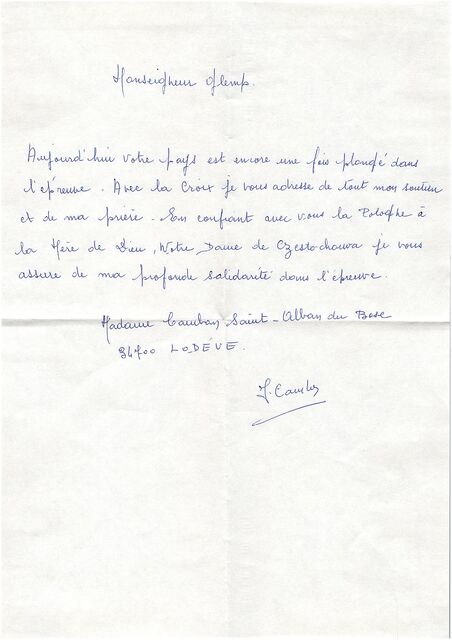 Monseigneur Glemp.
Aujourd'hui votre pays est encore une fois plongé dans
l'épreuve. Avec la Croix je vous adresse de tout mon soutien
et de ma prière. En confiant avec vous la Pologne à
la Mère de Dieu, Notre Dame de Czestochowa je vous
assure de ma profonde solidarité dans l'épreuve.
Madame Cambon Saint-Alban du Bosc
34700 LODÈVE.